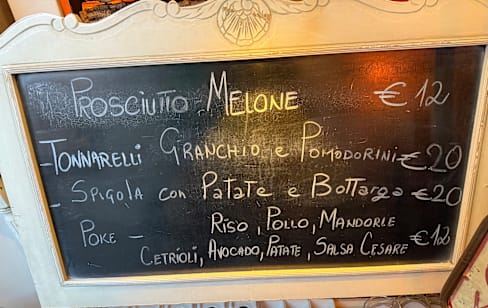 PROSCIUTTO MELONE €12
- TONNARELLI GRANCHIO e POMODORINI €20
- SPIGOLA con PATATE e BOTTARGA €20
POKE - RISO, POLLO, MANDORLE
CETRIOLI, AVOCADO, PATATE, SALSA CESARE €12